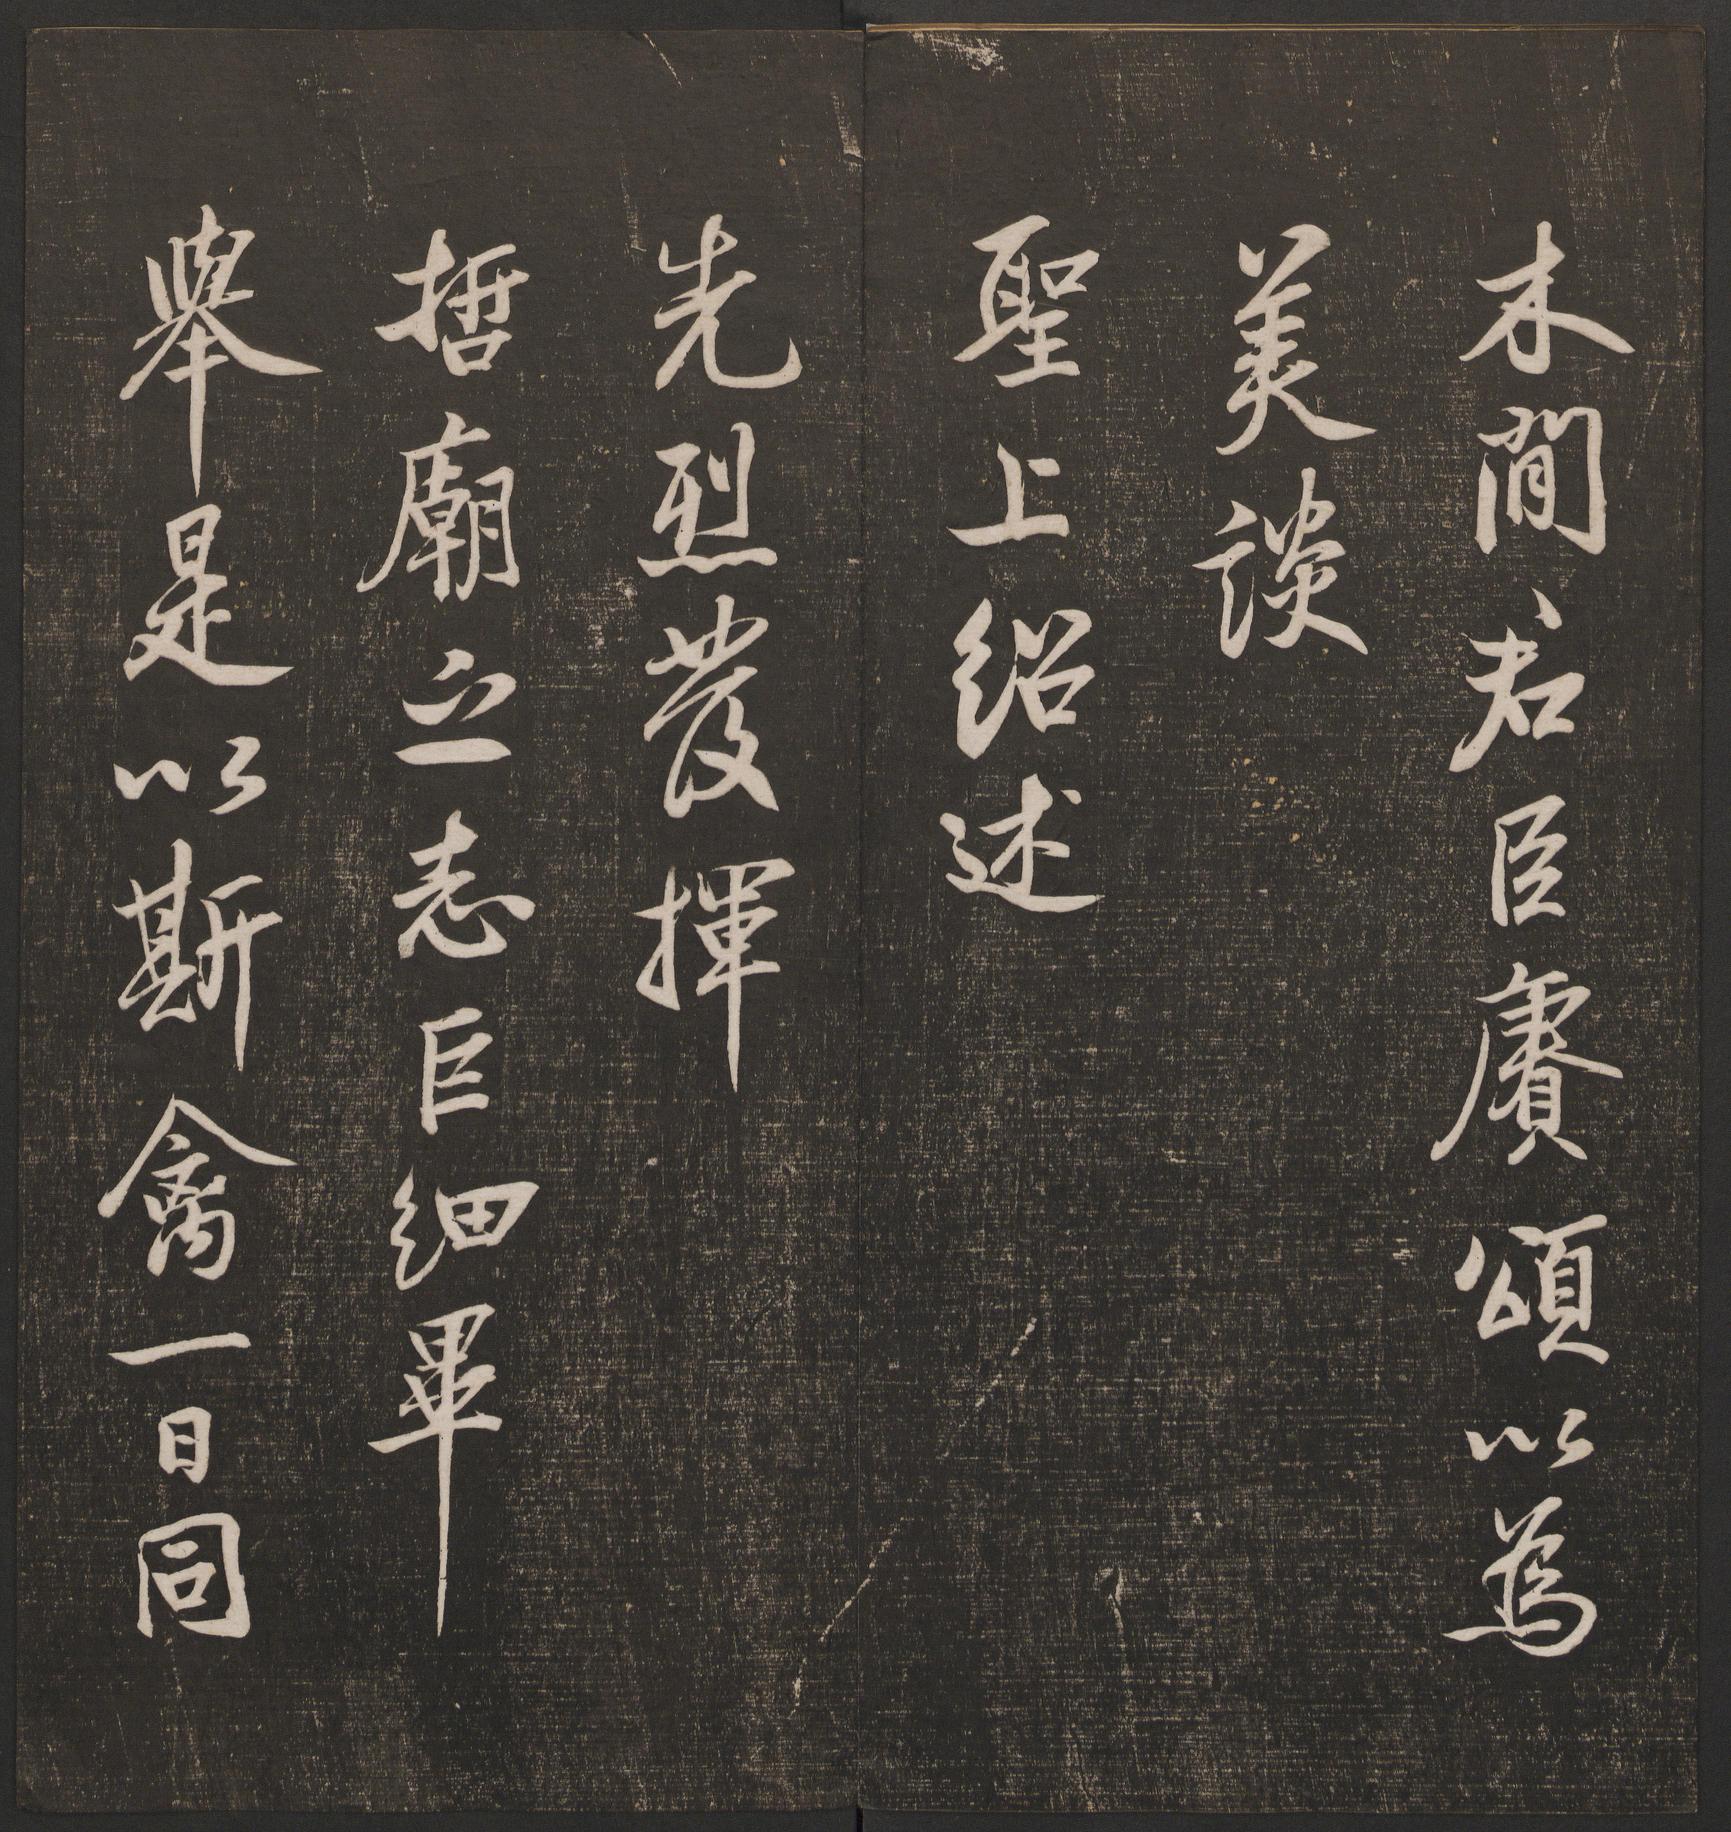 木間君臣賡頌以為
美談
聖上紹述
先烈發揮
哲廟之志巨細畢
舉是以斯禽一日同